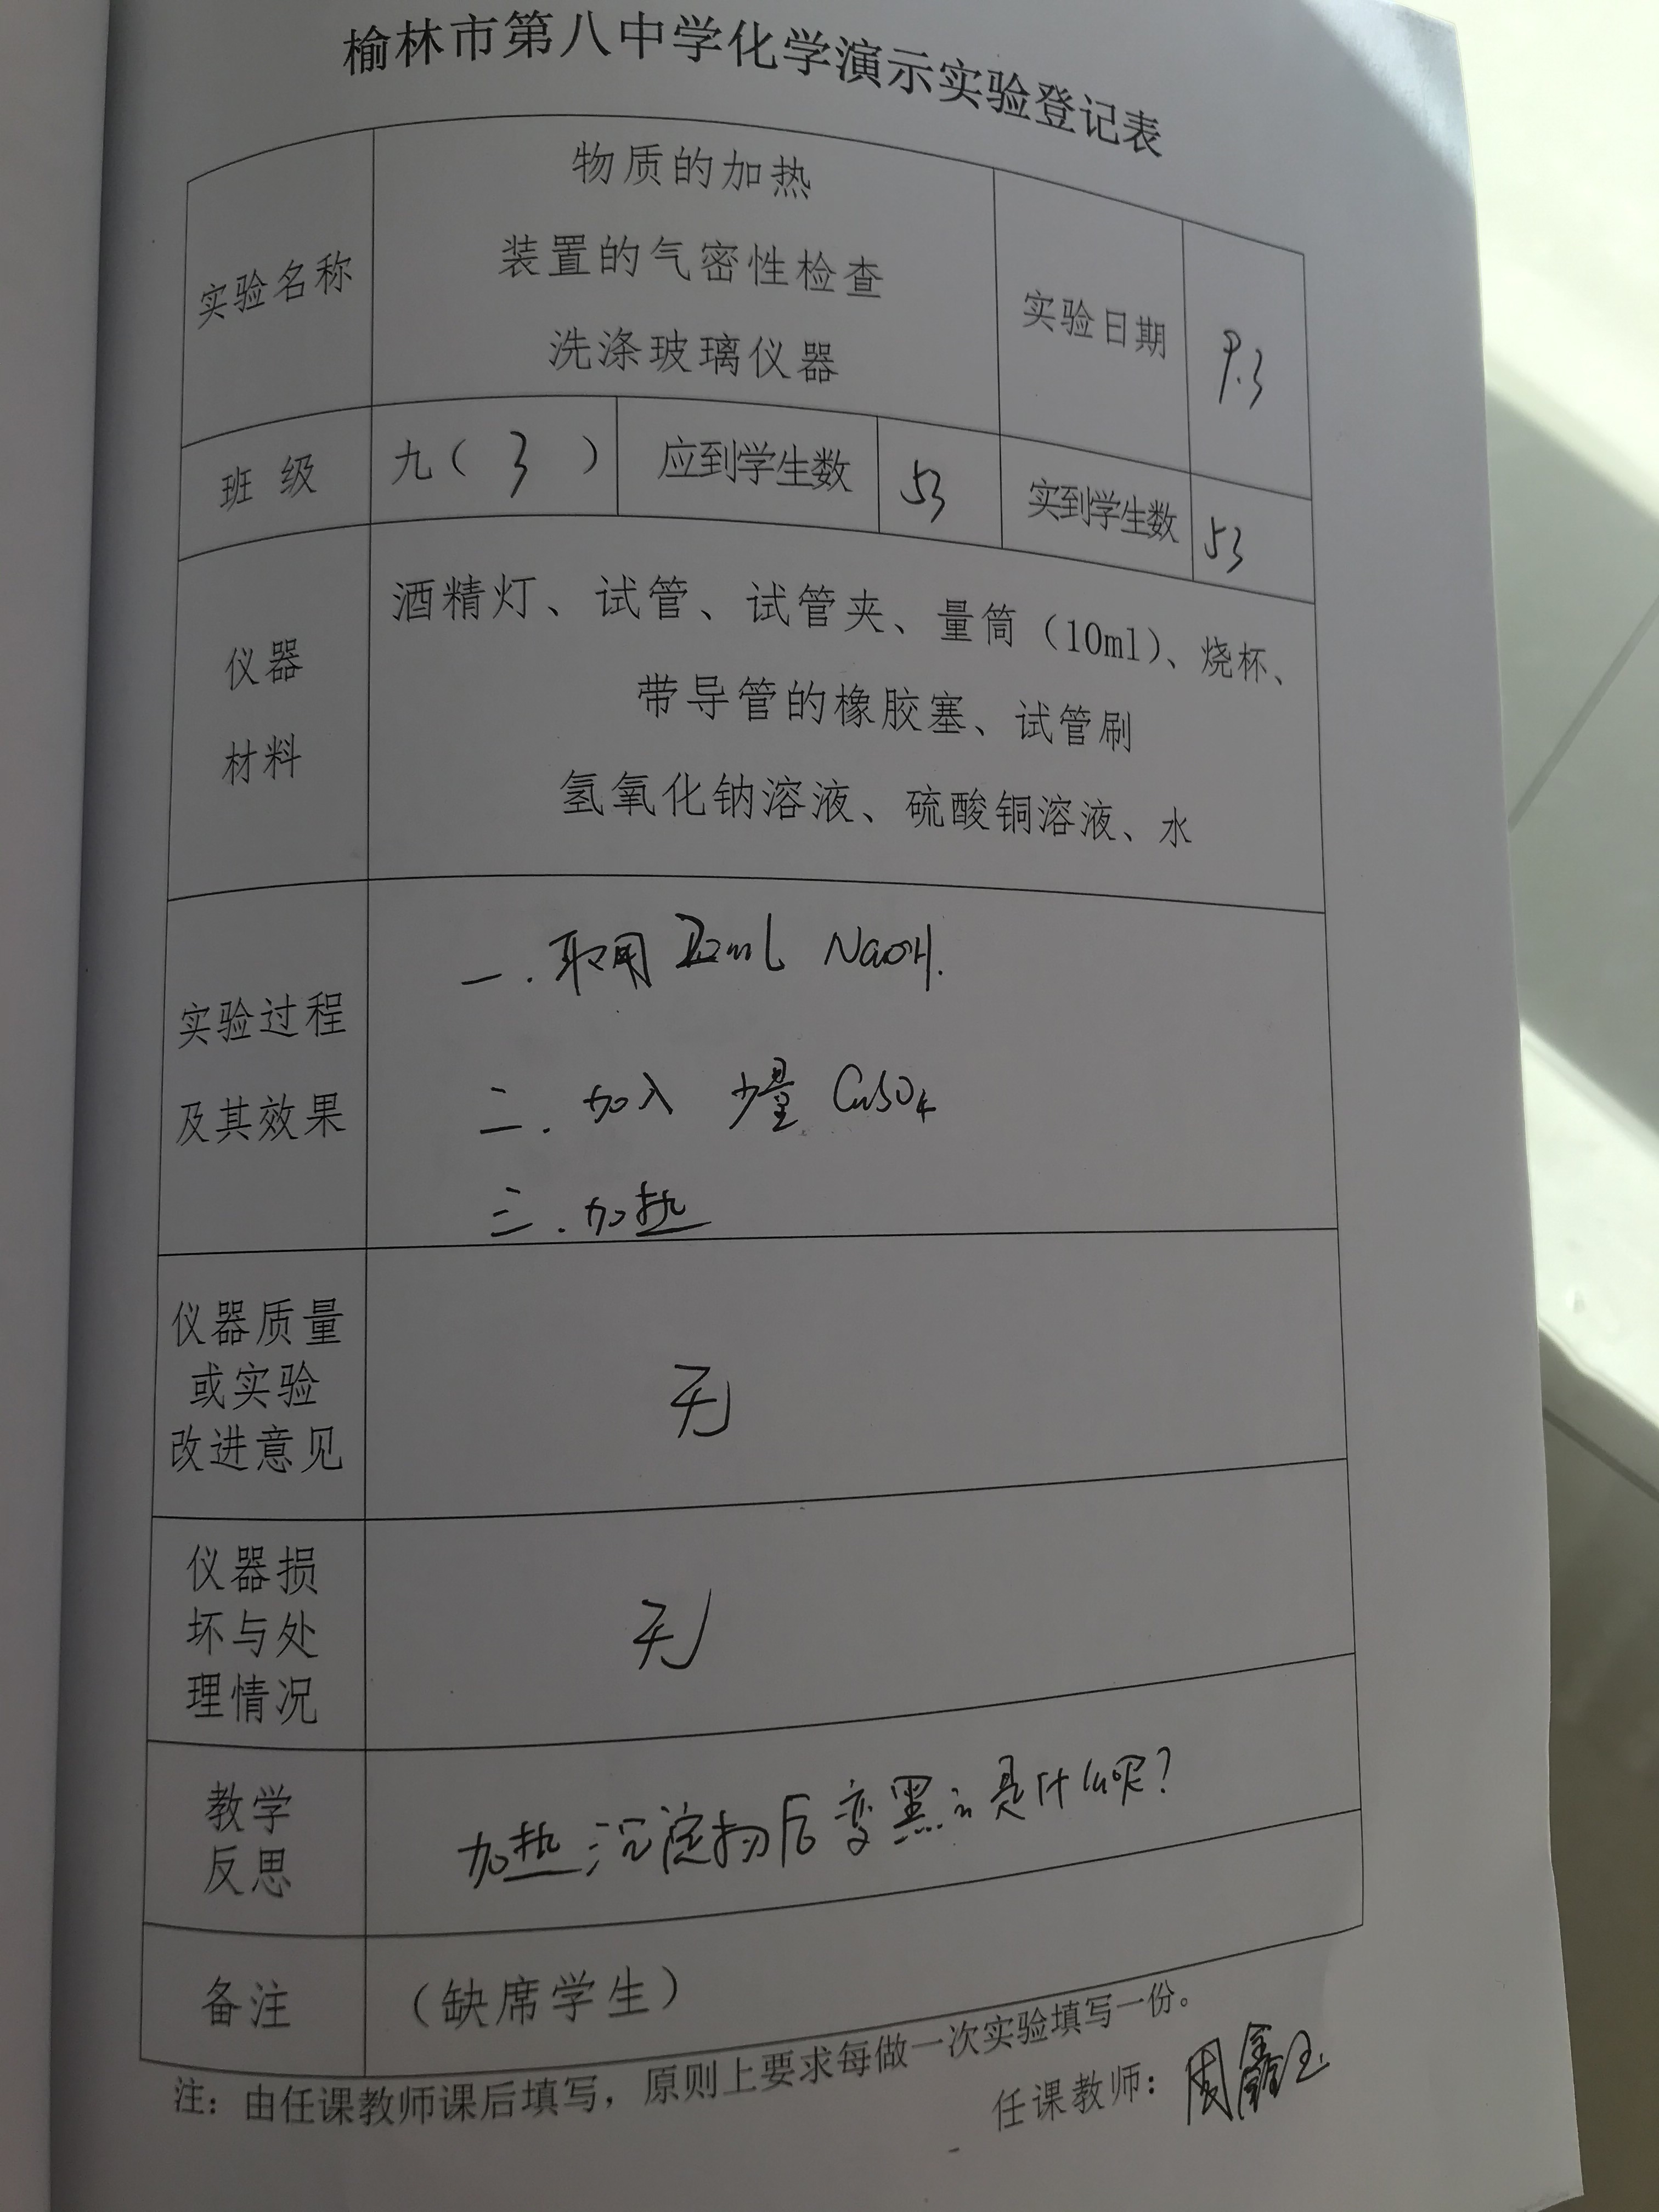 榆林市第八中学化学演示实验登记表
实验名称
物质的加热
装置的气密性检查
洗涤玻璃仪器
实验日期
9.3
班 级
九（ 3 ）
应到学生数
53
实到学生数
53
仪器
材料
酒精灯、试管、试管夹、量筒（10ml）、烧杯、
带导管的橡胶塞、试管刷
氢氧化钠溶液、硫酸铜溶液、水
实验过程
及其效果
一.取用 2ml NaOH.
二.加入 少量 CuSO4
三.加热
仪器质量
或实验
改进意见
无
仪器损
坏与处
理情况
无
教学
反思
加热沉淀物后变黑 是什么呢？
备注
（缺席学生）
注：由任课教师课后填写，原则上要求每做一次实验填写一份。
任课教师：周鑫